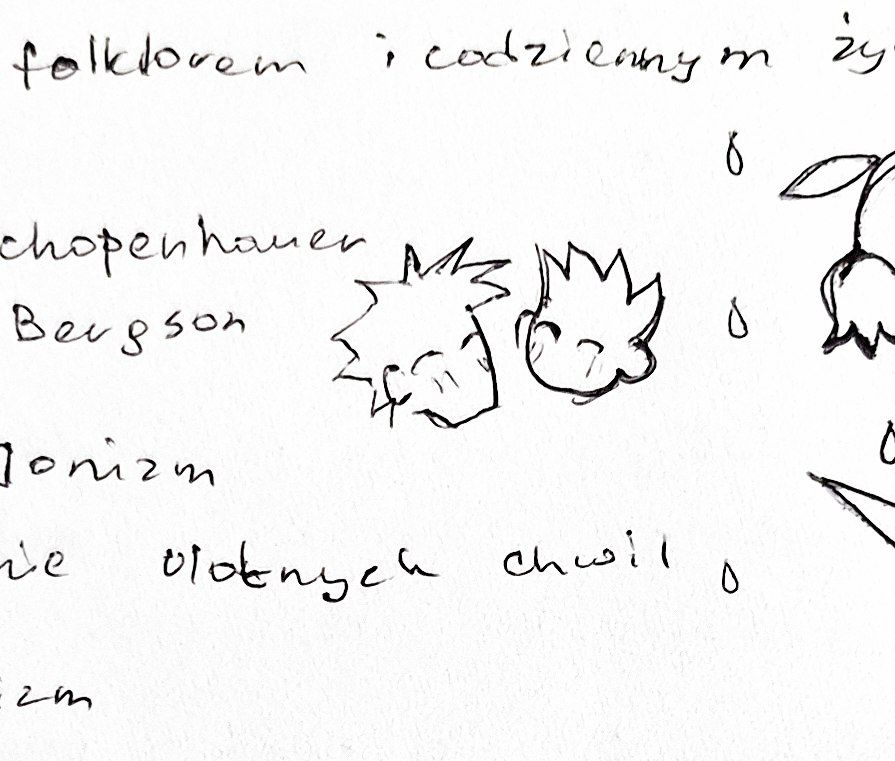 folklorem i codziennym ży
chopenhauer
Bergson
lonizm
nie ulotnych chwil
izm